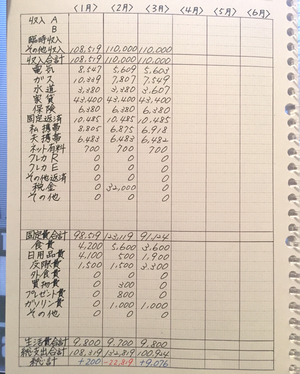 〈1月〉 〈2月〉 〈3月〉 〈4月〉 〈5月〉 〈6月〉
収入 A
B
臨時収入
その他収入 108,519 110,000 110,000
収入合計 108,519 110,000 110,000
電気 8,547 5,609 5,603
ガス 10,339 7,807 7,549
水道 3,380 3,380 3,607
家賃 43,400 43,400 43,400
保険 6,380 6,380 6,380
固定返済 10,485 10,485 10,485
私携帯 8,805 6,875 6,918
夫携帯 6,483 6,483 6,482
ネット有料 700 700 700
クレカ R 0 0 0
クレカ E 0 0 0
その他返済 0 0 0
税金 0 32,000 0
その他 0 0 0
固定費合計 98,519 123,119 91,124
食費 4,200 5,600 3,600
日用品費 4,100 500 1,900
医療費 1,500 1,500 3,300
外食費 0 0 0
買物費 0 300 0
プレゼント費 0 800 0
ガソリン費 0 1,000 1,000
その他 0 0 0
生活費合計 9,800 9,700 9,800
総支出合計 108,319 132,819 100,924
総計 +200 -22,819 +9,076